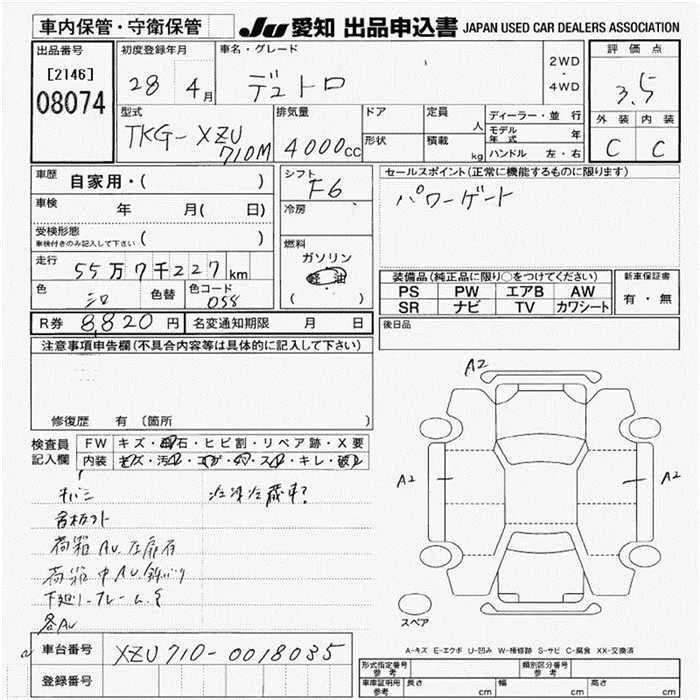 車内保管・守衛保管
JU 愛知 出品申込書 JAPAN USED CAR DEALERS ASSOCIATION
出品番号
[2146]
08074
初度登録年月
28 4月
車名・グレード
デュトロ
2WD
・
4WD
評価点
3.5
外装 内装
C C
型式
TKG-XZU
710M
排気量
4000cc
ドア
形状
定員
人
積載
kg
ディーラー・並行
モデル年式 年
ハンドル 左・右
車歴 自家用・( )
車検 年 月( 日)
受検形態
車検付きのみ記入して下さい ( )
走行 55万7千227km
色 シロ 色替 色コード 058
シフト
F6
冷房
燃料
ガソリン
軽油
( )
セールスポイント(正常に機能するものに限ります)
パワーゲート
装備品(純正品に限り○をつけてください)
PS PW エアB AW
SR ナビ TV カワシート
新車保証書
有・無
R券 8,820円 名変通知期限 月 日
後日品
注意事項申告欄(不具合内容等は具体的に記入して下さい)
修復歴 有 〔箇所 〕
検査員
記入欄
FW キズ・飛石・ヒビ割・リペア跡・X要
内装 キズ・汚れ・コゲ・穴・スレ・キレ・破れ
キバミ
荷箱AU
荷箱中AU
下廻り フレーム
各AU
A2
A2
A2
スペア
A-キズ E-エクボ U-凹み W-補修跡 S-サビ C-腐食 XX-交換済
車台番号 XZU710-0018035
登録番号
形式指定番号
参考
類別区分番号
参考
車庫証明用
参考
長さ cm 幅 cm 高さ cm